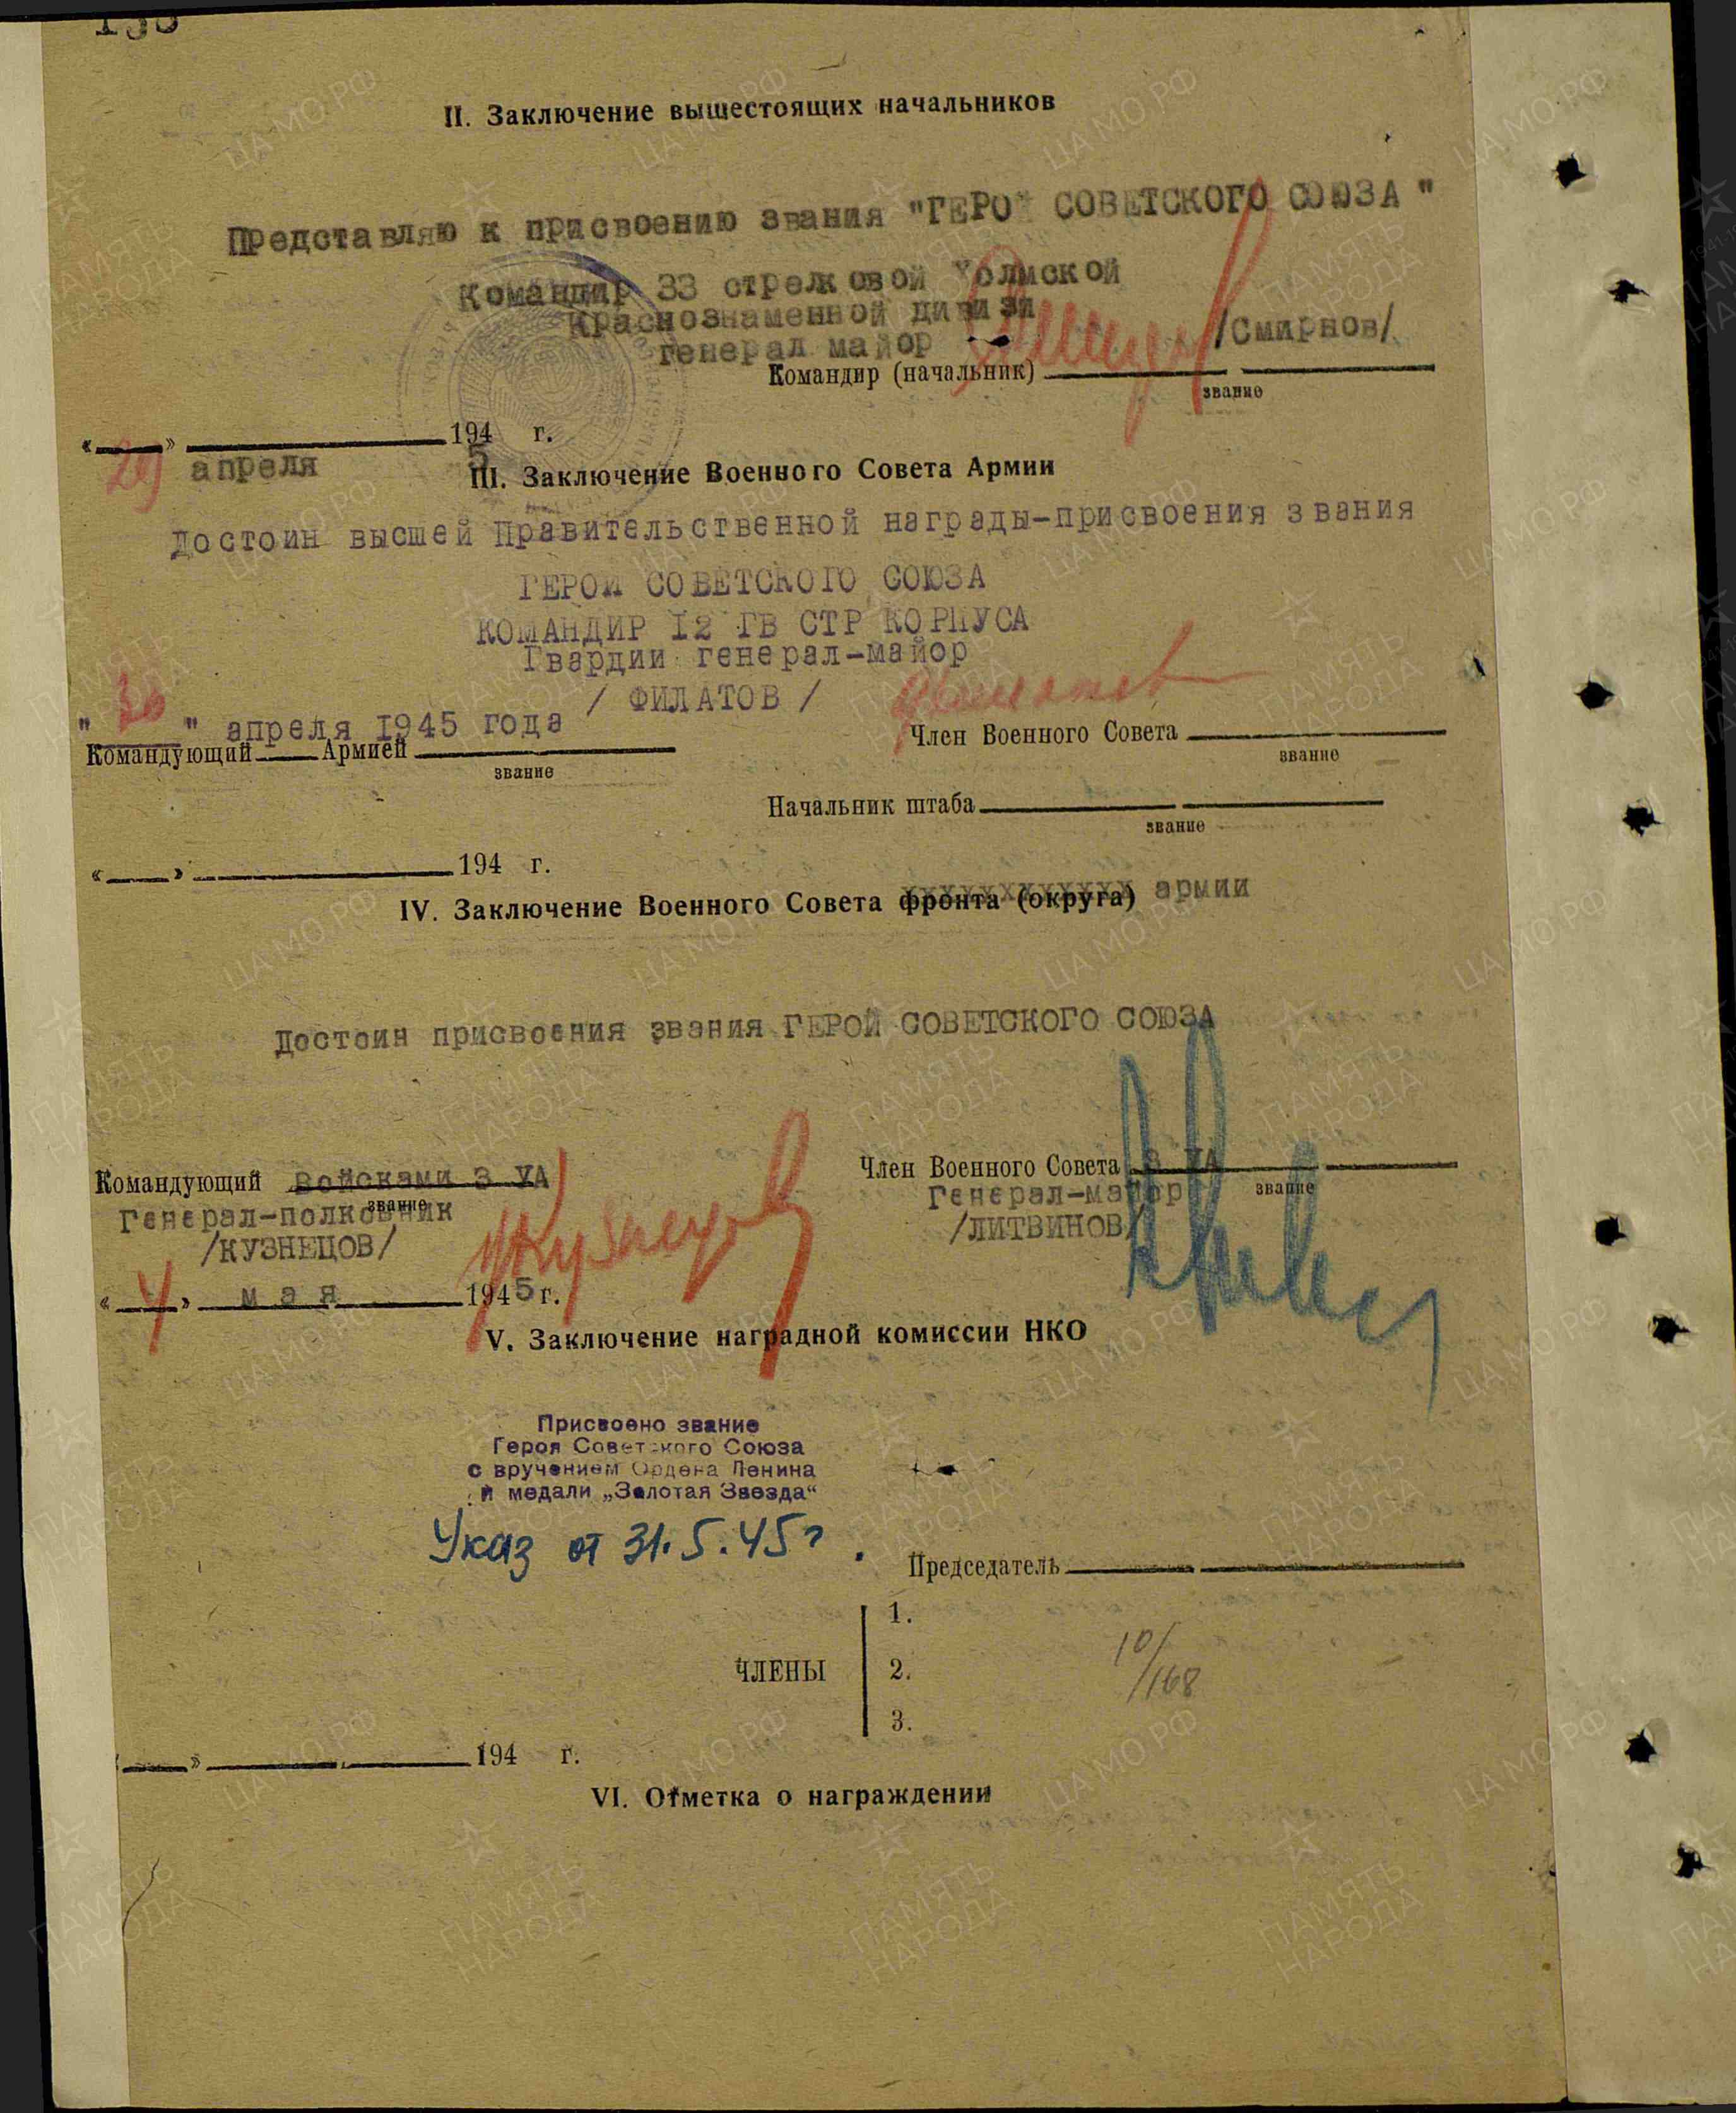 II. Заключение вышестоящих начальников
Представляю к присвоению звания "ГЕРОЙ СОВЕТСКОГО СОЮЗА"
Командир 33 стрелковой Холмской
Краснознаменной дивизи
генерал майор /Смирнов/
Командир (начальник)
звание
« » 194 г.
29 апреля 5
III. Заключение Военного Совета Армии
Достоин высшей Правительственной награды-присвоения звания
ГЕРОЙ СОВЕТСКОГО СОЮЗА
КОМАНДИР 12 ГВ СТР КОРПУСА
Гвардии генерал-майор
/ ФИЛАТОВ /
"30" апреля 1945 года
Командующий Армией
звание
Член Военного Совета
звание
Начальник штаба
звание
« » 194 г.
IV. Заключение Военного Совета фронта (округа) армии
Достоин присвоения звания ГЕРОЙ СОВЕТСКОГО СОЮЗА
Командующий войсками 3 УА
звание
Генерал-полковник
/КУЗНЕЦОВ/
Член Военного Совета 3 УА
звание
Генерал-майор
/ЛИТВИНОВ/
«4» мая 1945 г.
V. Заключение наградной комиссии НКО
Присвоено звание
Героя Советского Союза
с вручением Ордена Ленина
и медали „Золотая Звезда“
Указ от 31.5.45г.
Председатель
1.
ЧЛЕНЫ 2.
3.
10/168
« » 194 г.
VI. Отметка о награждении
ПАМЯТЬ НАРОДА
ЦА МО РФ